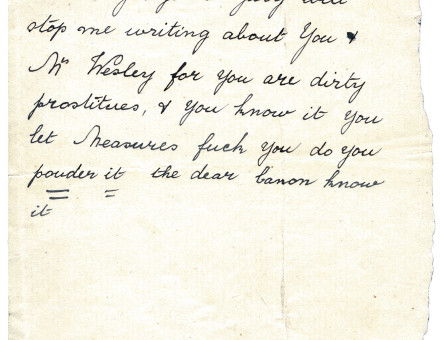 will
stop me writing about You &
Mrs Wesley for You are dirty
prostitues, & You know it You
let Measures fuck You do You
pouder it the dear banon know
it